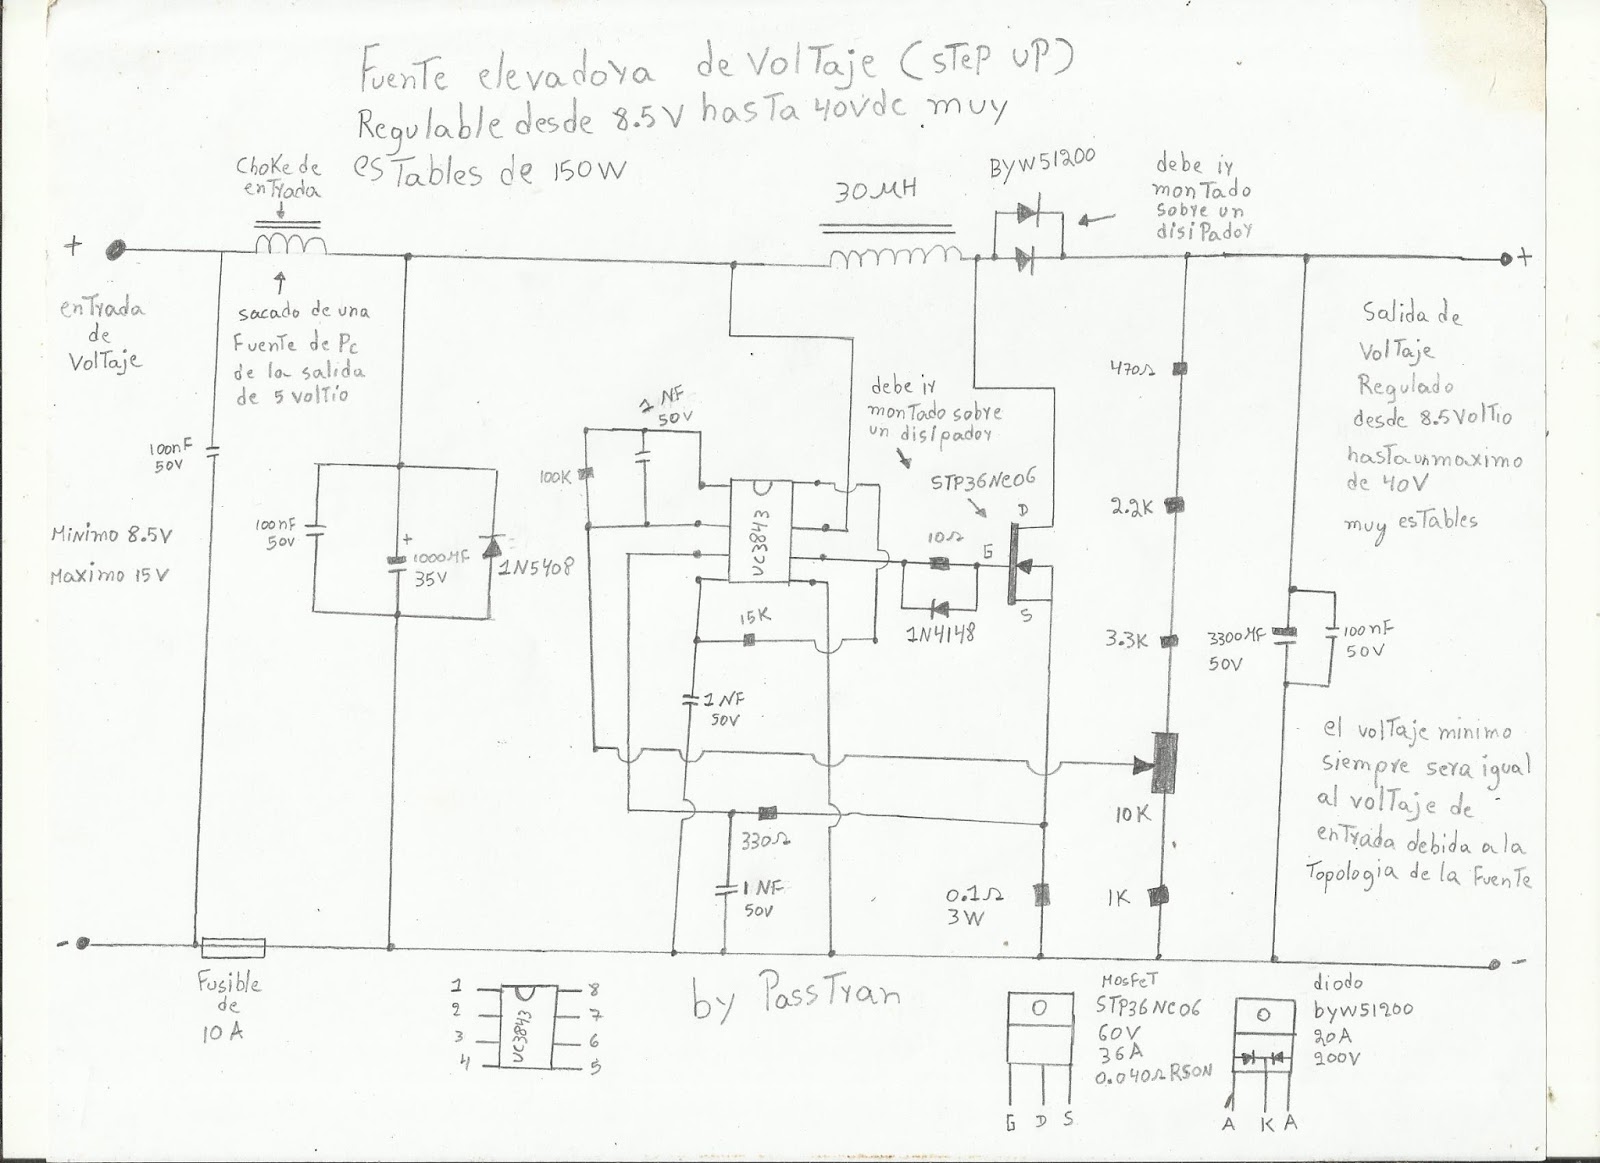 Fuente elevadora de Voltaje (step up)
Regulable desde 8.5V hasta 40vdc muy
estables de 150W
Choke de
entrada
30MH
BYW51200
debe ir
montado
sobre un
disipador
+
+
entrada
de
Voltaje
sacado de una
Fuente de Pc
de la salida
de 5 voltio
Salida de
Voltaje
Regulado
desde 8.5Voltio
hasta un maximo
de 40V
muy estables
470Ω
debe ir
montado sobre
un disipador
1 NF
50V
100nF
50V
100K
STP36NC06
D
G
S
2.2K
100nF
50V
+
1000MF
35V
1N5408
Minimo 8.5V
Maximo 15V
UC3843
10Ω
1N4148
15K
3.3K
3300MF
50V
100nF
50V
1 NF
50V
10K
el voltaje minimo
siempre sera igual
al voltaje de
entrada debida a la
Topologia de la Fuente
330Ω
1 NF
50V
0.1Ω
3W
1K
-
-
Fusible
de
10A
1
2
3
4
UC3843
8
7
6
5
by PassTran
MosFeT
STP36NC06
60V
36A
0.040ΩRSON
G D S
diodo
byw51200
20A
200V
A K A